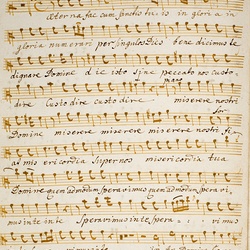 æterna fac cum sanctis tuis in gloria in
gloria numerari per singulos Dies benedicimus te
dignare Domine die isto sine peccato nos custo,
dire Custodire custodire miserere nostri
Domine miserere miserere miserere nostri fi,
at misericordia super nos misericordia tua
Domine quemadmodum speravimus quemadmodum speravi,
mus in te in te Speravimus in te spera rimus